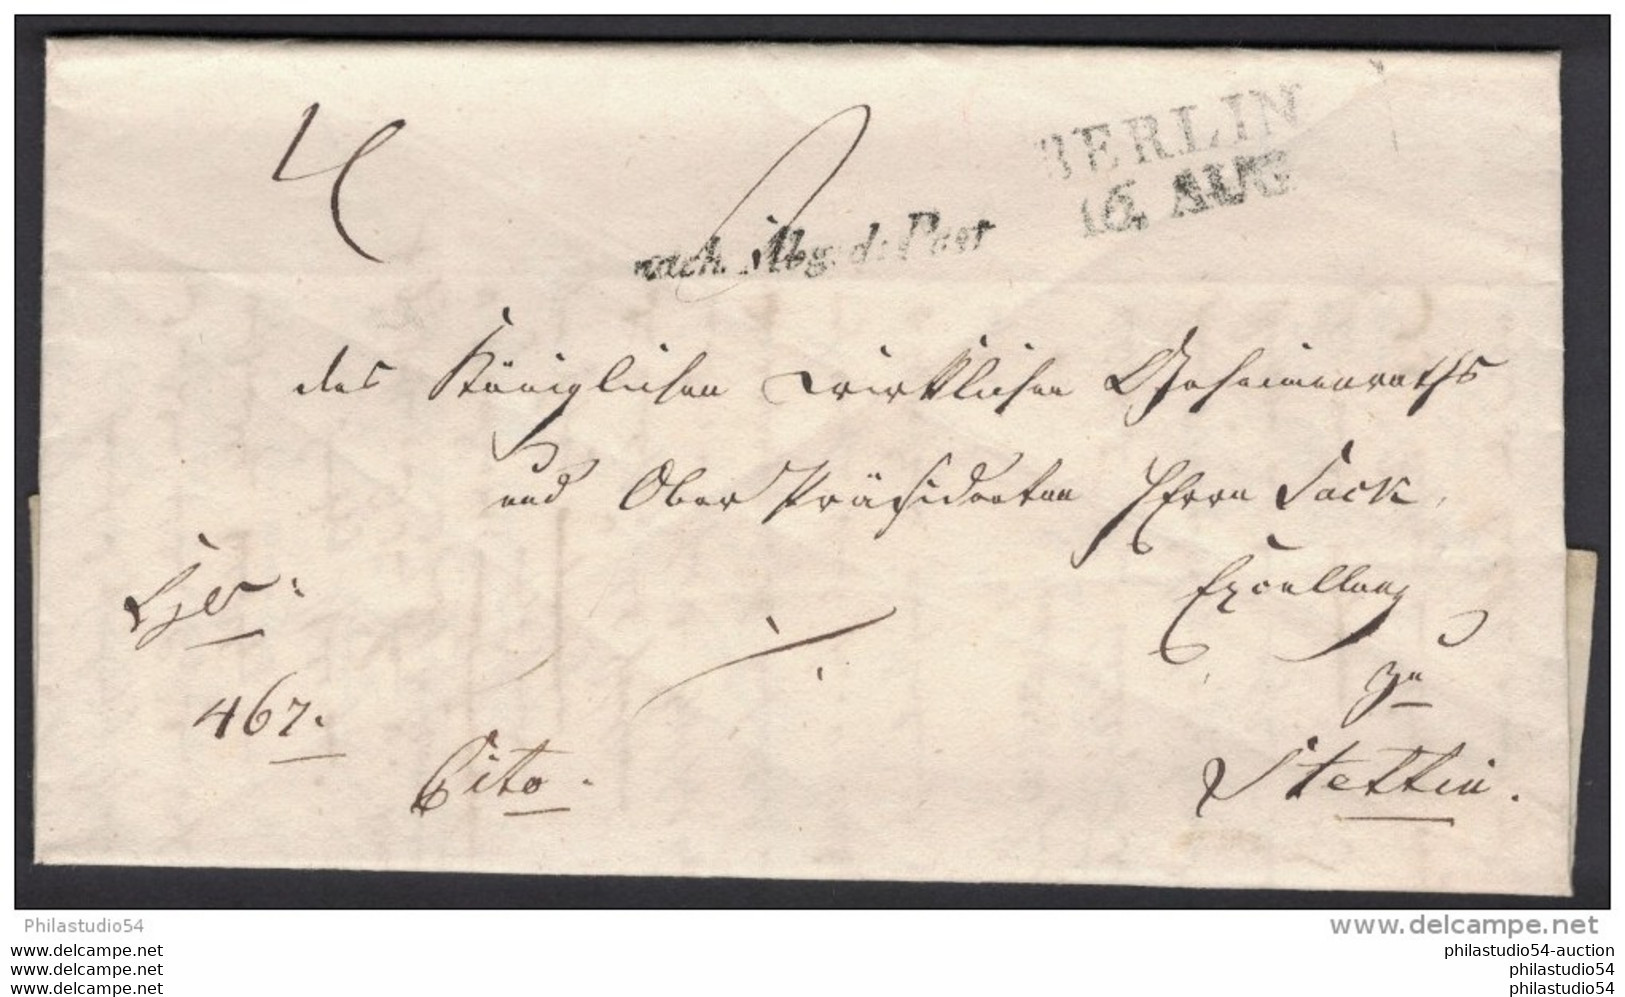 BERLIN
16. AUG
nach Abg: d: Post
des Königlichen wirklichen Geheimenraths
und Ober Präsidenten Herrn Sack
Excellenz
zu
467.
Cito.
Stettin.
Philastudio54
www.delcampe.net
www.delcampe.net
www.delcampe.net
www.delcampe.net
philastudio54-auction
philastudio54
philastudio54